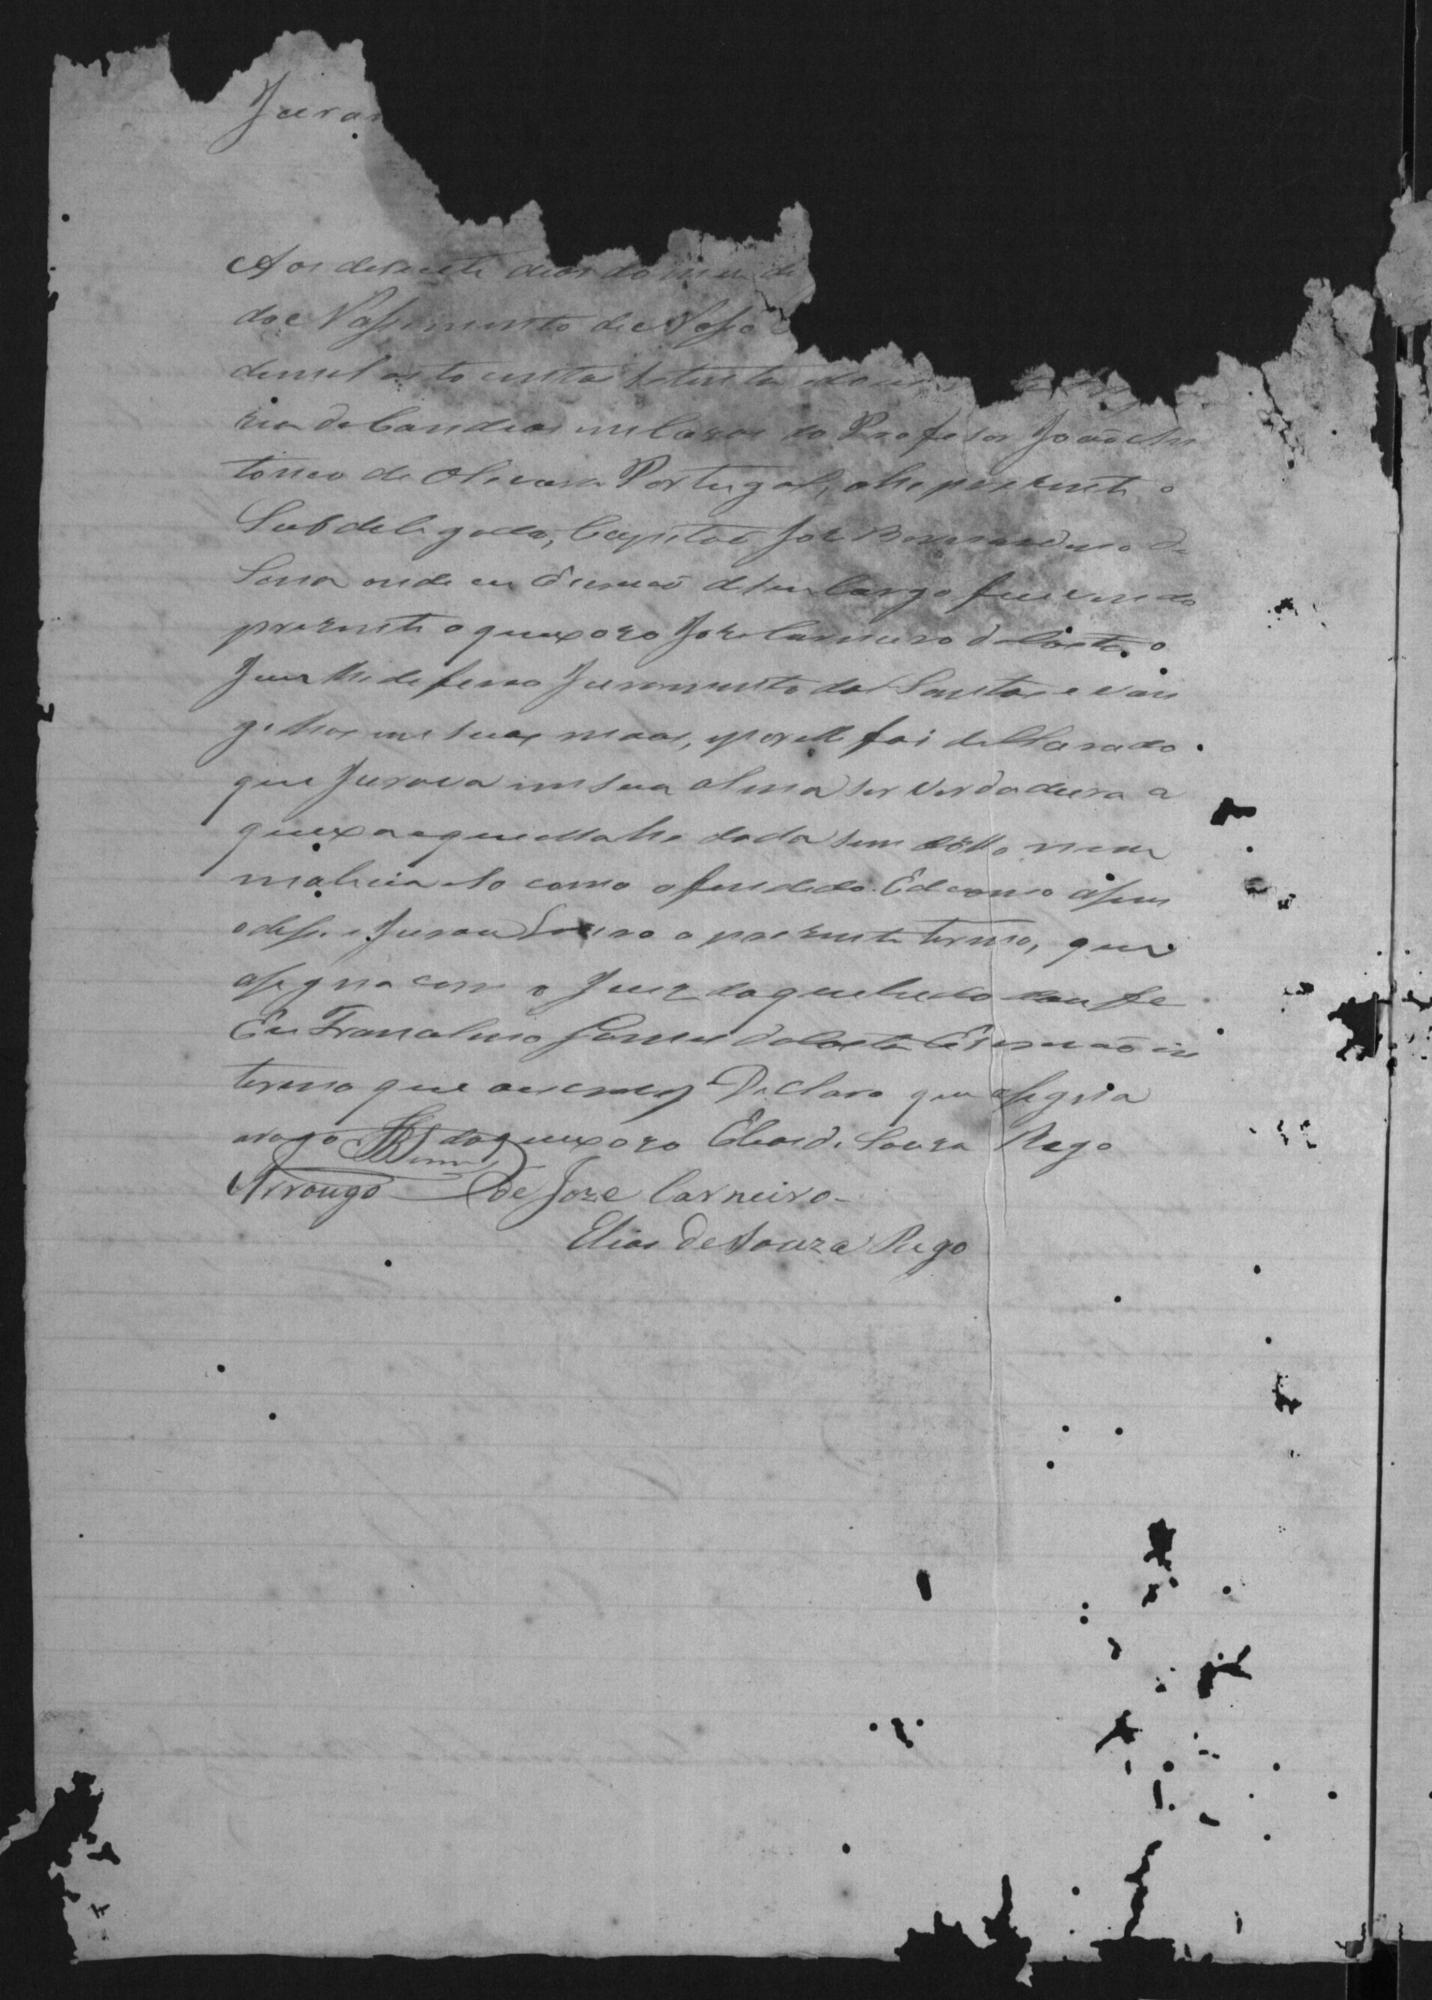 Juram
Aos dezesete dias do mes de
do Nassimento de Nosso
de mil oito centos setenta e
ria de Candeas em Cazas do Profesor João An
tonio de Oliveira Portugal, ahe prezente o
Subdelegado, Capitão José Bernardino de
Sena onde eu Escrivão de seu Cargo fui vindo
prezente o queixozo Joze Carneiro da Costa, o
Juiz lhe deferio Juramento dos Santos evan
gelhos em suas maos, e por elle foi declarado
que Jurava em sua alma ser verdadeira a
queixa e que ella he dada sem dóllo nem
malicia so como ofendido. E de como assim
o disse e Jurou Lavro o prezente termo, que
assigna com o Juiz do que tudo dou fe
Eu Francelino Gomes da Costa Escrivão in
terino que escrevy Declaro que assigna
arogo do queixozo Elias de Souza Rego
Arrougo de Joze Carneiro
Elias de Souza Rego